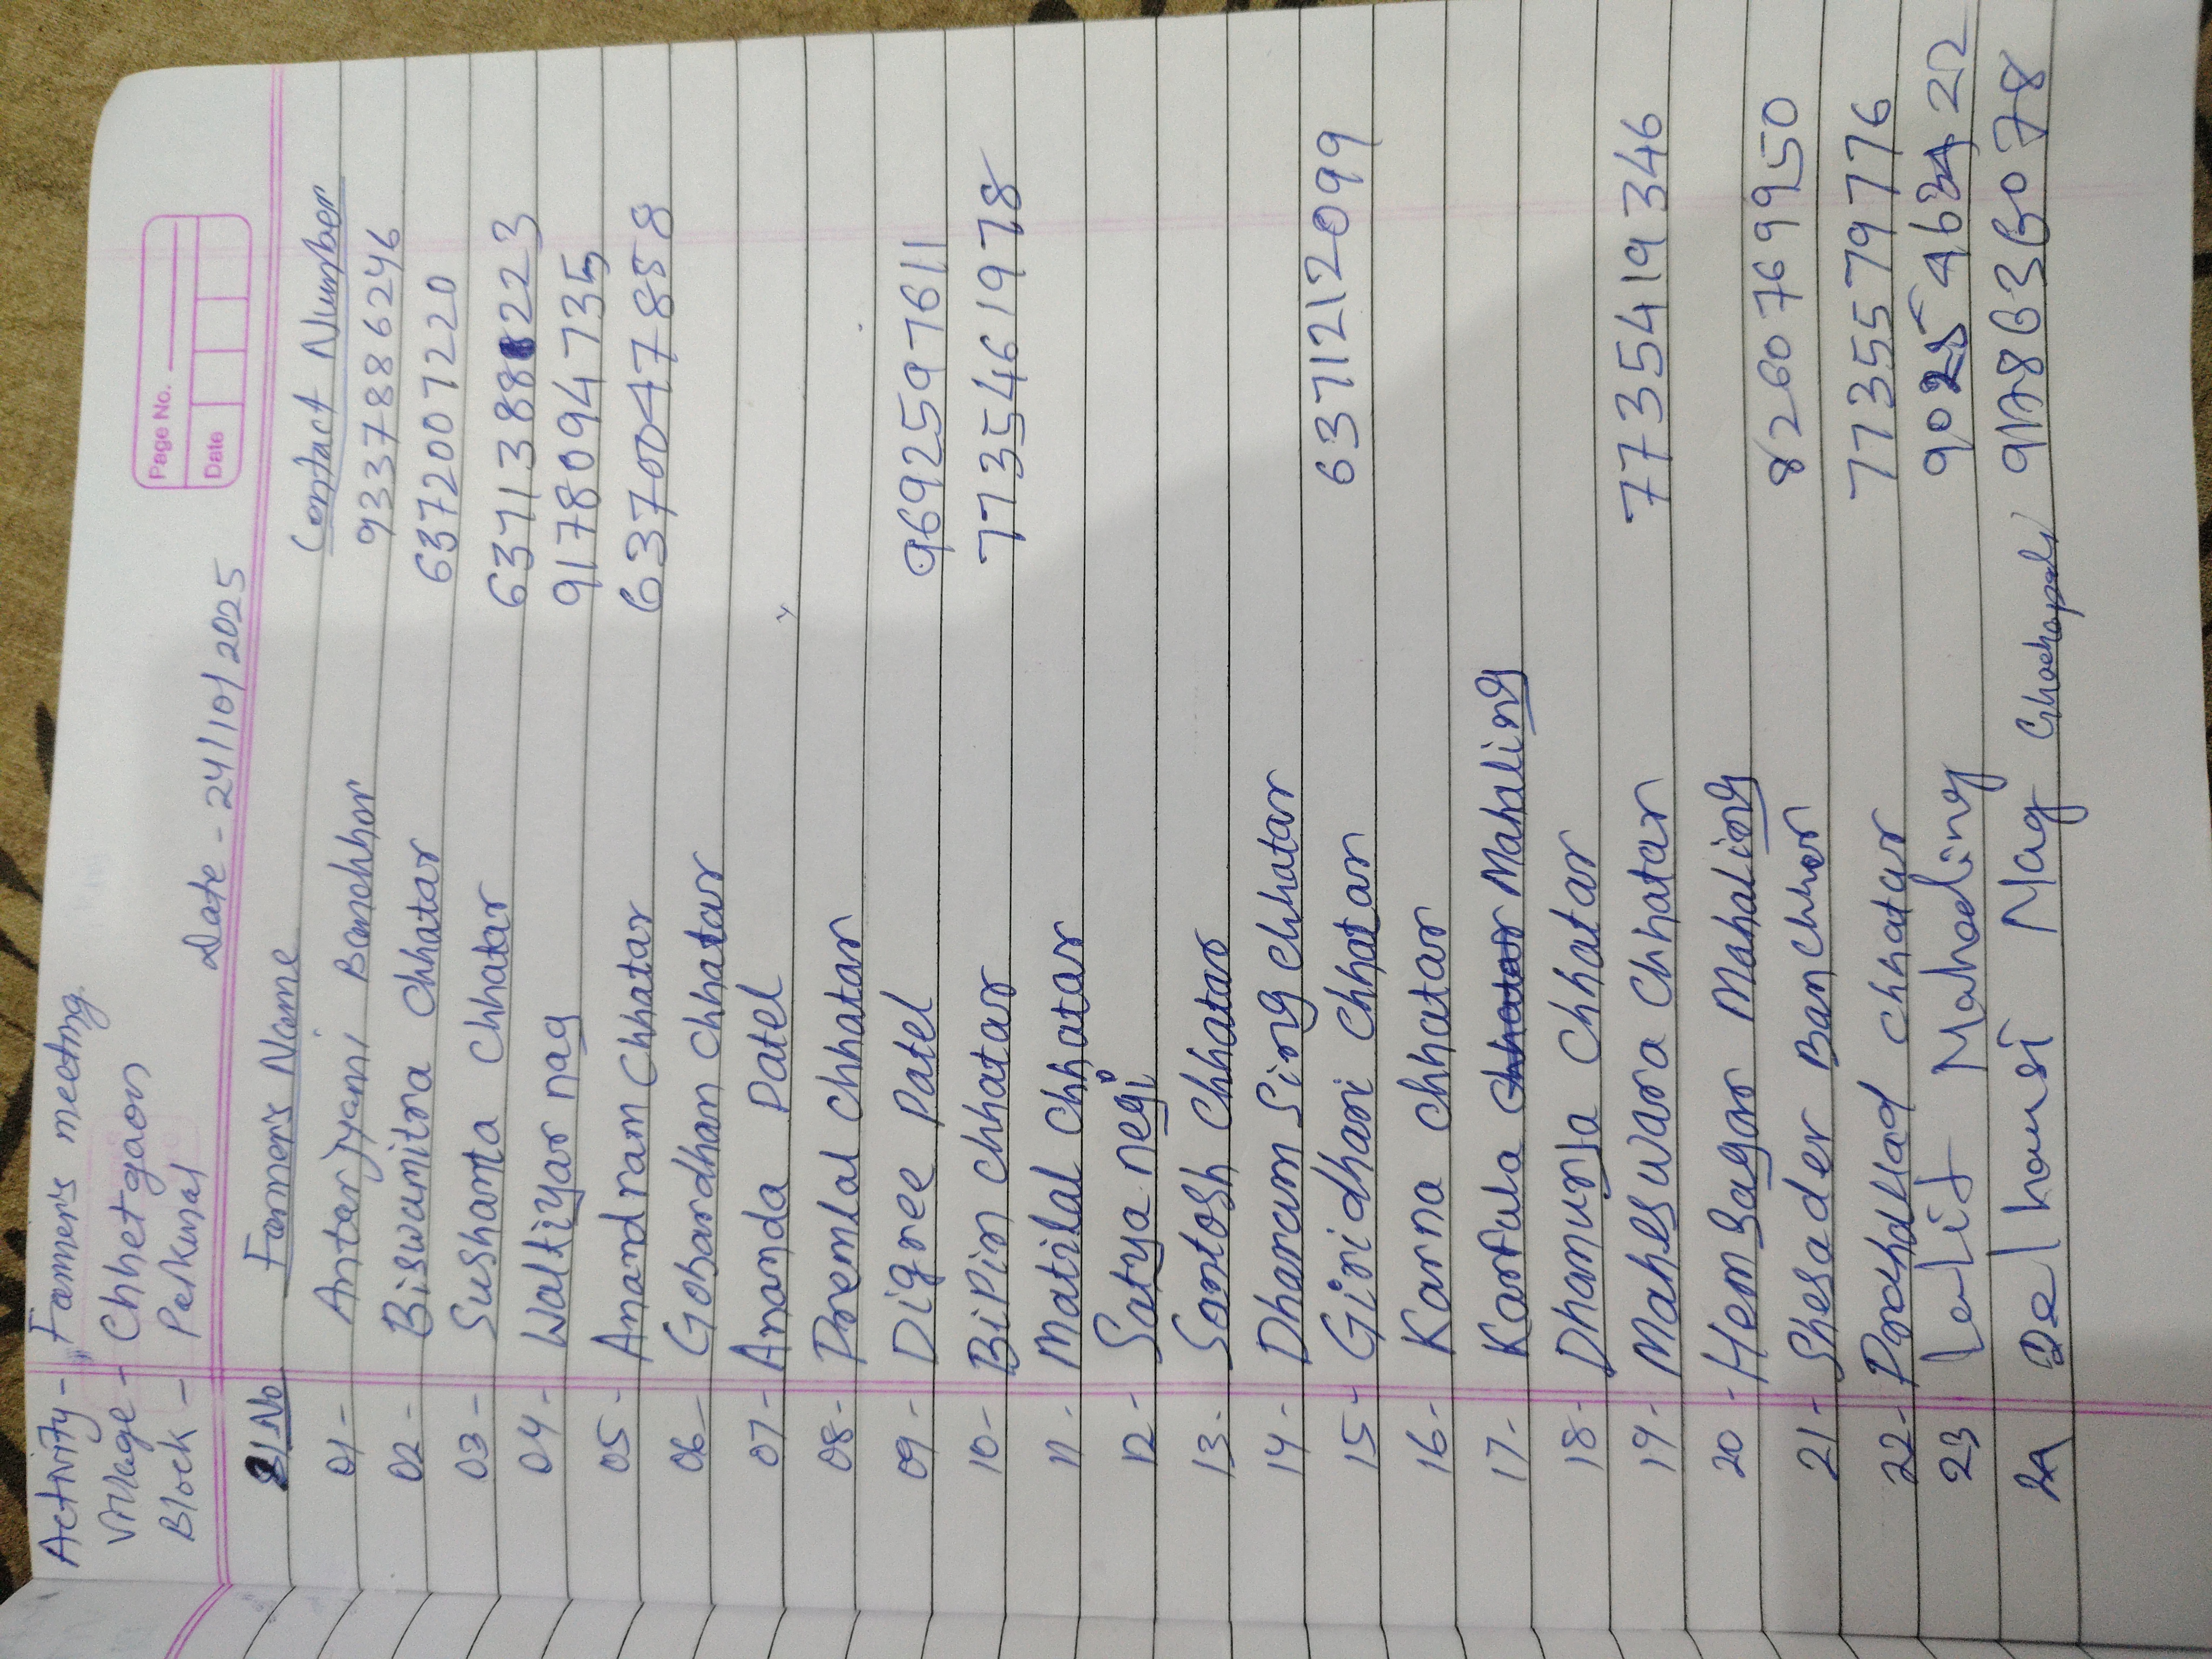 Activity - "Farmer's meeting
Village - Chhetgaon
Block -
Page No.
Date
Date - 24/10/2025
Sl No Farmer's Name Contact Number
01 - Antarjyami Banchhor 9337886246
02 - Biswamitra Chhatar 6372007220
03 - Sushanta Chhatar
04 - Waltiyar nag 9178094735
05 - Anandram Chhatar 6370047858
06 - Gobardhan Chhatar
07 - Ananda Patel
08 - Premlal Chhatar
09 - Digree Patel 9692597611
10 - BiPin Chhatar 7735461978
11 - Matilal Chhatar
12 - Satya negi
13 - Santosh Chhatar
14 - Dharam Sing Chhatar
15 - Giridhari Chhatar 6371212099
16 - Karna Chhatar
17 - Mahaling
18 - Dhanurja Chhatar
19 - Maheswara Chhatar 7735419346
20 - Hemsagar Mahaling
21 - Shesader Banchhor 8260769950
22 - Chhatar 7735579776
23 Lalit Mahaling
24 Nag